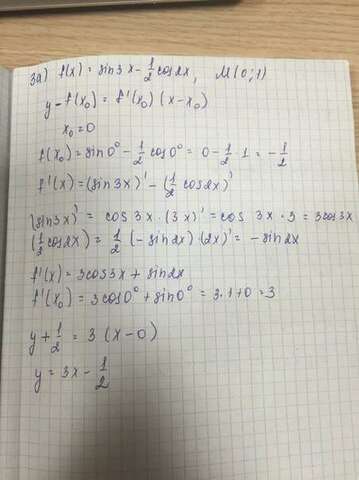 3a) f(x) = sin3x - 1/2 cos2x, M(0;1)
y - f(x₀) = f'(x₀) (x-x₀)
x₀ = 0
f(x₀) = sin0° - 1/2 cos0° = 0 - 1/2 · 1 = -1/2
f'(x) = (sin3x)' - (1/2 cos2x)'
(sin3x)' = cos 3x · (3x)' = cos 3x · 3 = 3cos3x
(1/2 cos2x) = 1/2 (-sin2x) (2x)' = -sin2x
f'(x) = 3cos3x + sin2x
f'(x₀) = 3cos0° + sin0° = 3·1+0 = 3
y + 1/2 = 3 (x-0)
y = 3x - 1/2